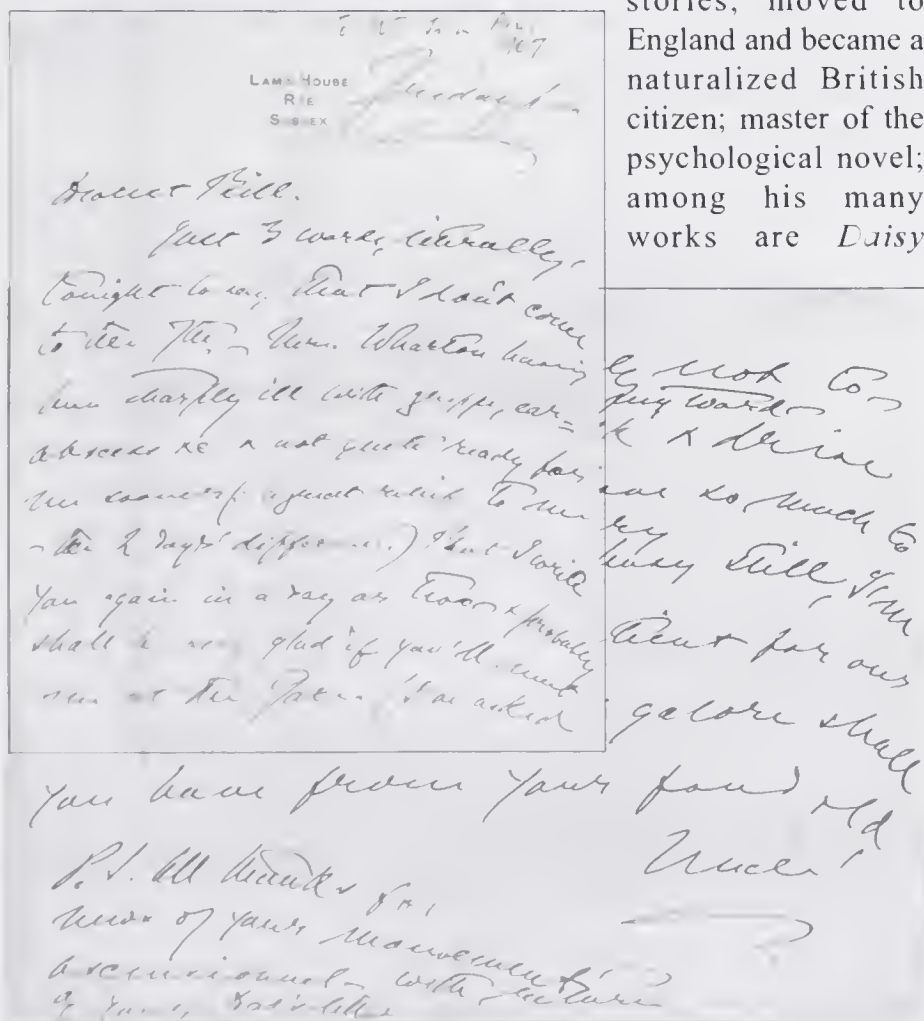 stories, moved to
England and became a
naturalized British
citizen; master of the
psychological novel;
among his many
works are Daisy
LAMB HOUSE
RYE
SUSSEX
Dearest Bill.
Just 3 words, literally,
tonight to say that I don't come
to the 7th – Mrs. Wharton having
been sharply ill with grippe, ear-
abscess &c & not quite ready for
me sooner
– the 2 days' difference.) But I will
you again in a day or two & probably
shall be very glad if you'll meet
me at the I've asked
not to
& drive
so much to
busy still, I'm
for our
galore shall
you have from your fond old
Uncle!
P.S. All thanks for
news of your mouvement
ascensionnel – with